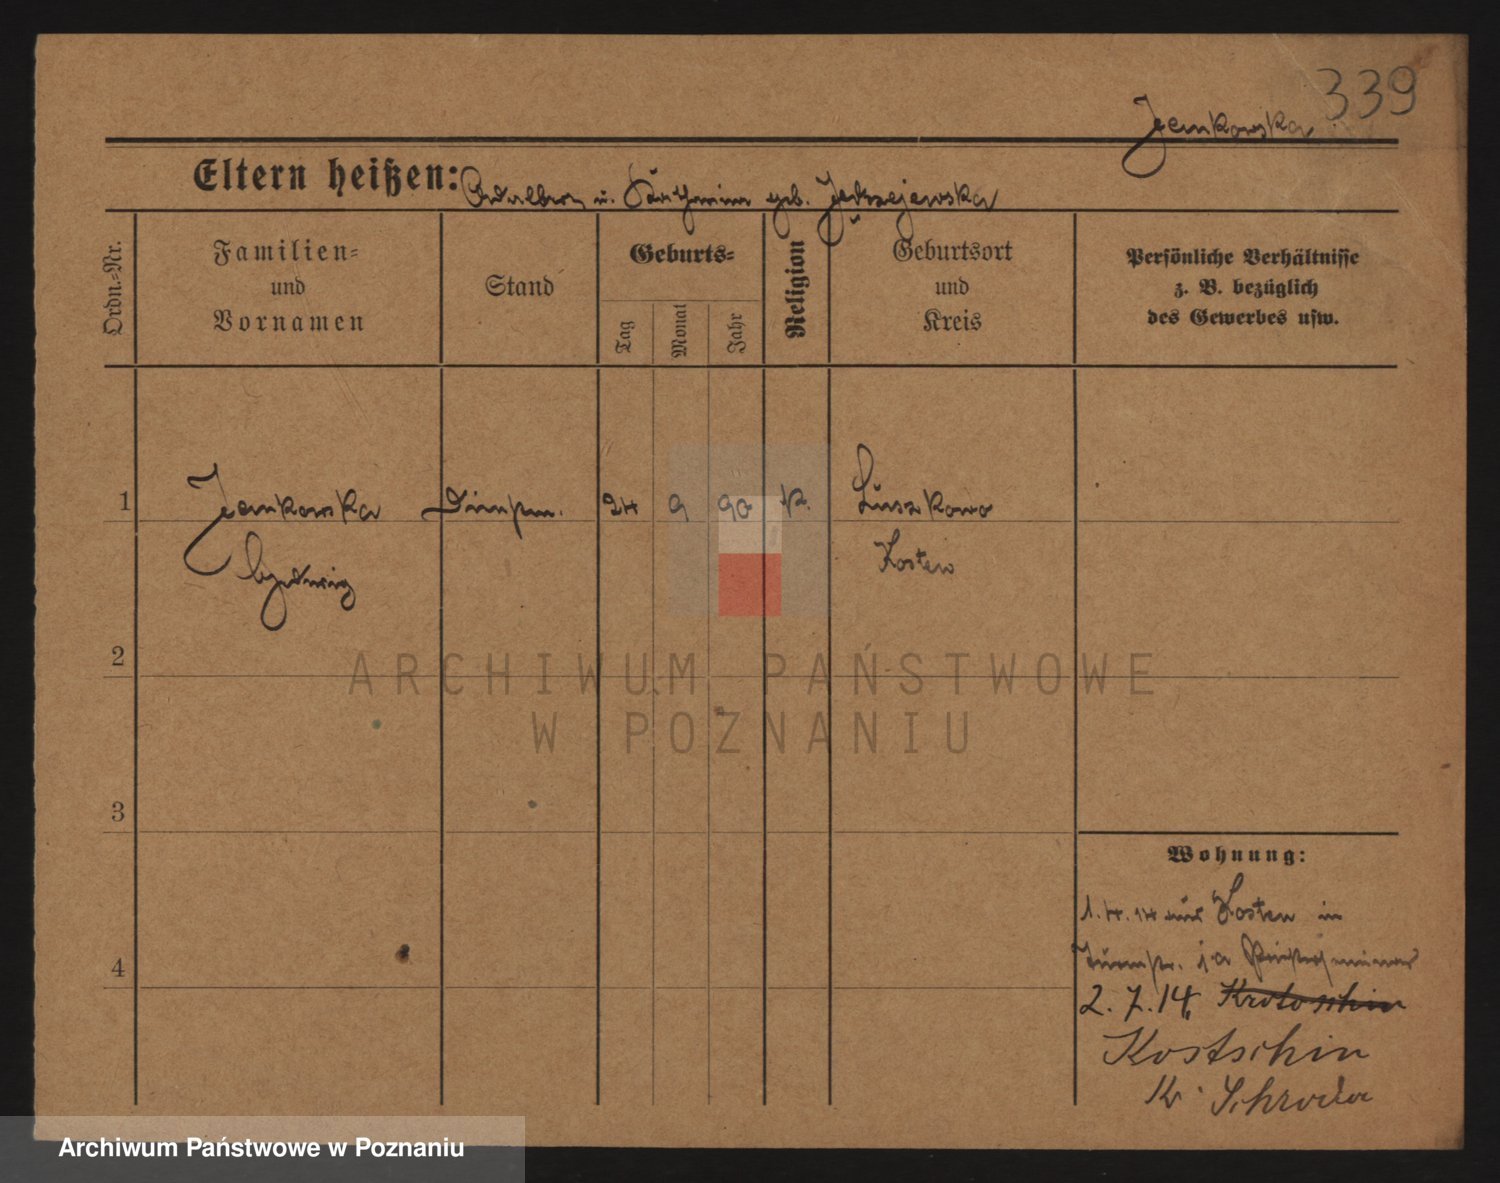 339
Jankowska
Eltern heißen: Adalbert u. Katharina geb. Jedrzejewska
Ordn.-Nr.
Familien-
und
Vornamen
Stand
Geburts-
Tag
Monat
Jahr
Religion
Geburtsort
und
Kreis
Persönliche Verhältnisse
z. B. bezüglich
des Gewerbes usw.
1 Jankowska Dienstm. 24 9 90 k. Luszkowo
Hedwig Kosten
2
ARCHIWUM PAŃSTWOWE
W POZNANIU
3
Wohnung:
1.4.14 aus Kosten in
Turmstr.
4
2.7.14, Krotoschin
Kostschin
Kr. Schroda
Archiwum Państwowe w Poznaniu